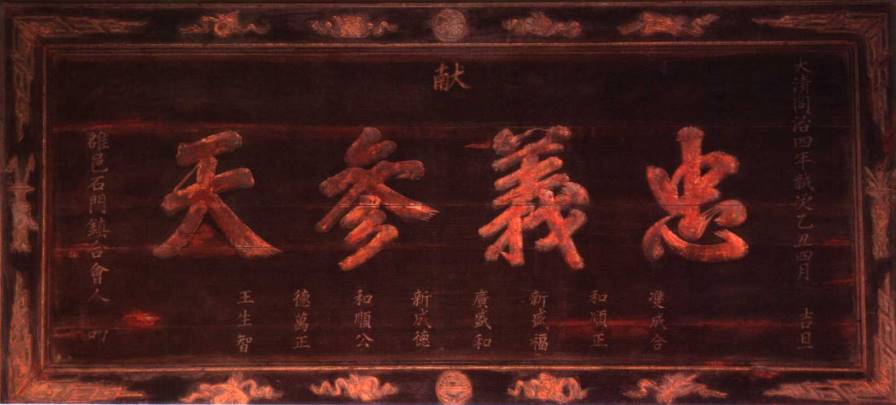 大清同治四年歲次乙丑四月 吉旦
献
忠義參天
雙成合
和順正
新盛福
廣盛和
新成德
和順公
德萬正
王生智
邑石門鎮合會人 叩